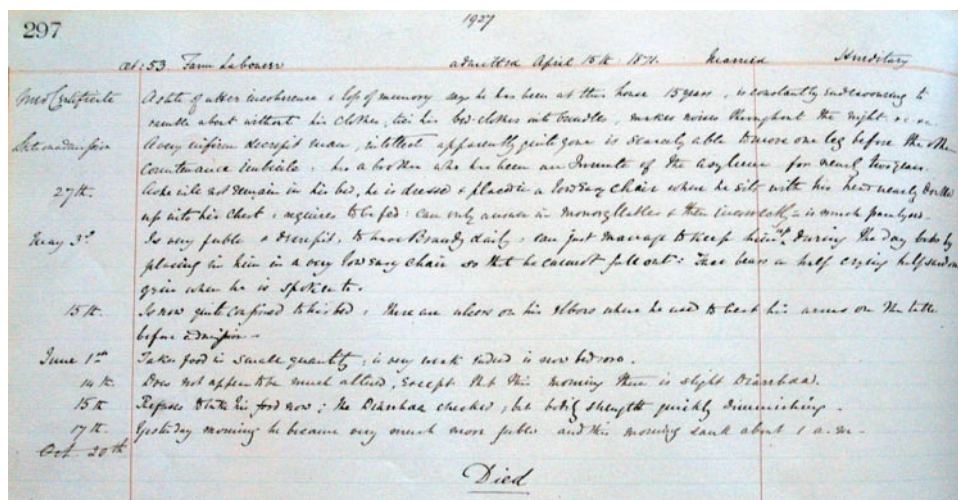 297
1927
æt: 53. Farm Labourer admitted April 15th 1871. Married Hereditary
Med Certificate A state of utter incoherence & loss of memory says he has been at this house 15 years, is constantly endeavouring to
ramble about without his clothes, ties his bed-clothes into bundles, makes noises throughout the night
State on admission A very infirm decrepit man, intellect apparently quite gone is scarcely able to move one leg before the other
Countenance imbecile. has a brother who has been an Inmate of the asylum for nearly two years.
27th. As he will not remain in his bed, he is dressed & placed in a low easy chair where he sits with his head nearly doubled
up into his chest, requires to be fed: can only answer in monosyllables & then incorrectly - is much paralysed.
May 3rd Is very feeble & decrepit, to have Brandy daily, can just manage to keep him up during the day by
placing him in a very low easy chair so that he cannot fall out: Face bears a half crying half
grin when he is spoken to.
15th. Is now quite confined to his bed, there are ulcers on his elbows where he used to rest his arms on the table
before admission -
June 1st Takes food in small quantity, is very weak indeed is now bed
14th. Does not appear to be much altered, except that this morning there is slight Diarrhœa.
15th Refuses to take his food now; the Diarrhœa checked, but bodily strength quickly diminishing.
17th. Yesterday morning he became very much more feeble and this morning sank about 1 a.m.
Oct. 20th
Died